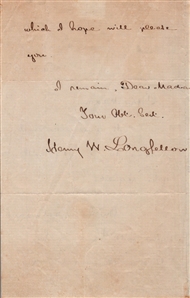 which I hope will please
you.
I remain, Dear Madam
Your Obt. Sert.
Henry W. Longfellow